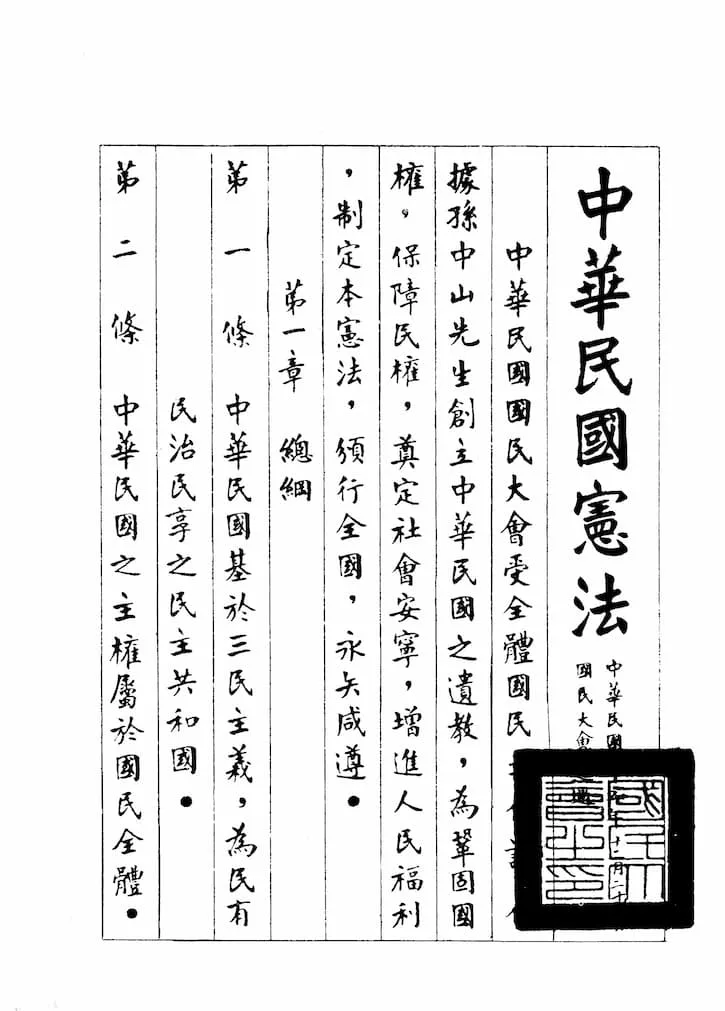 中華民國憲法
中華民國
年十二月二十
國民大會
國民大
會之印
中華民國國民大會受全體國民
據孫中山先生創立中華民國之遺教，為鞏固國
權，保障民權，奠定社會安寧，增進人民福利
，制定本憲法，頒行全國，永矢咸遵。
第一章　總綱
第一條　中華民國基於三民主義，為民有
民治民享之民主共和國。
第二條　中華民國之主權屬於國民全體。